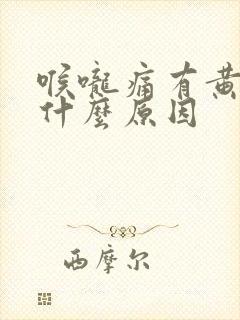 喉嚨痛有黃
什麼原因
西摩尔